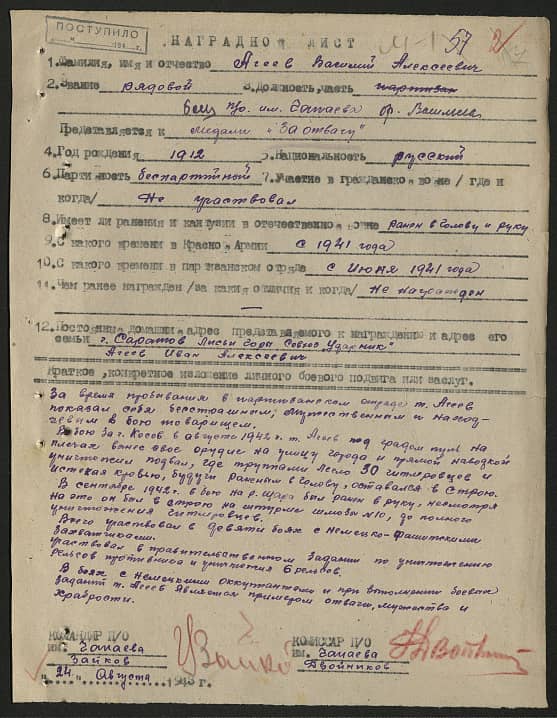 ПОСТУПИЛО
НАГРАДНОЙ ЛИСТ
57
1.Фамилия, имя и отчество Агеев Василий Алексеевич
2.Звание рядовой 3.Должность, часть партизан
боец п/о. им. Чапаева бр.
Представляется к медали "За отвагу"
4.Год рождения 1912 5.Национальность русский
6.Партийность беспартийной 7.Участие в гражданской войне / где и
когда/ Не участвовал
8.Имеет ли ранения и контузии в отечественной войне ранен в голову и руку
9.С какого времени в Красной Армии с 1941 года
10.С какого времени в партизанском отряде с июня 1941 года
11.Чем ранее награжден /за какия отличия и когда/ не награжден
12.Постоянный домашний адрес представляемого к награждению и адрес его
семьи г. Саратов Лысые Горы Совхоз "Ударник"
Агеев Иван Алексеевич
Краткое ,конкретное изложение личного боевого подвига или заслуг.
За время пребывания в партизанском отряде т. Агеев
показал себя бесстрашным, мужественным и наход-
чевым в бою товарищем.
В бою за г. Косов в августе 1942 г. т. Агеев под градом пуль на
плечах вынес свое орудие на улицу города и прямой наводкой
уничтожил подвал, где трупами легло 30 гитлеровцев и
истекая кровью, будучи раненым в голову, оставался в строю.
В сентябре 1942 г. в бою на р. Щара был ранен в руку, несмотря
на это он был в строю на штурме шлюза №10, до полного
уничтожения гитлеровцев.
Всего участвовал в девяти боях с немецко-фашистскими
захватчиками.
Участвовал в правительственном задании по уничтожению
рельсов противника и уничтожил 6 рельсов.
В боях с немецкими оккупантами и при выполнении боевых
заданий т. Агеев является примером отваги, мужества и
храбрости.
КОМАНДИР П/О КОМИССАР П/О
им. Чапаева им. Чапаева
Зайков Двойников
"24" Августа 1943 г.